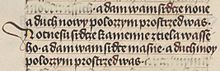 adam wam srdce nowe
a duch nowy polozym prostrzed was
Y otnesu srdce kamenne ztiela wasse
ho a dam wam srdce masne a duch moy
polozym prostrzed was